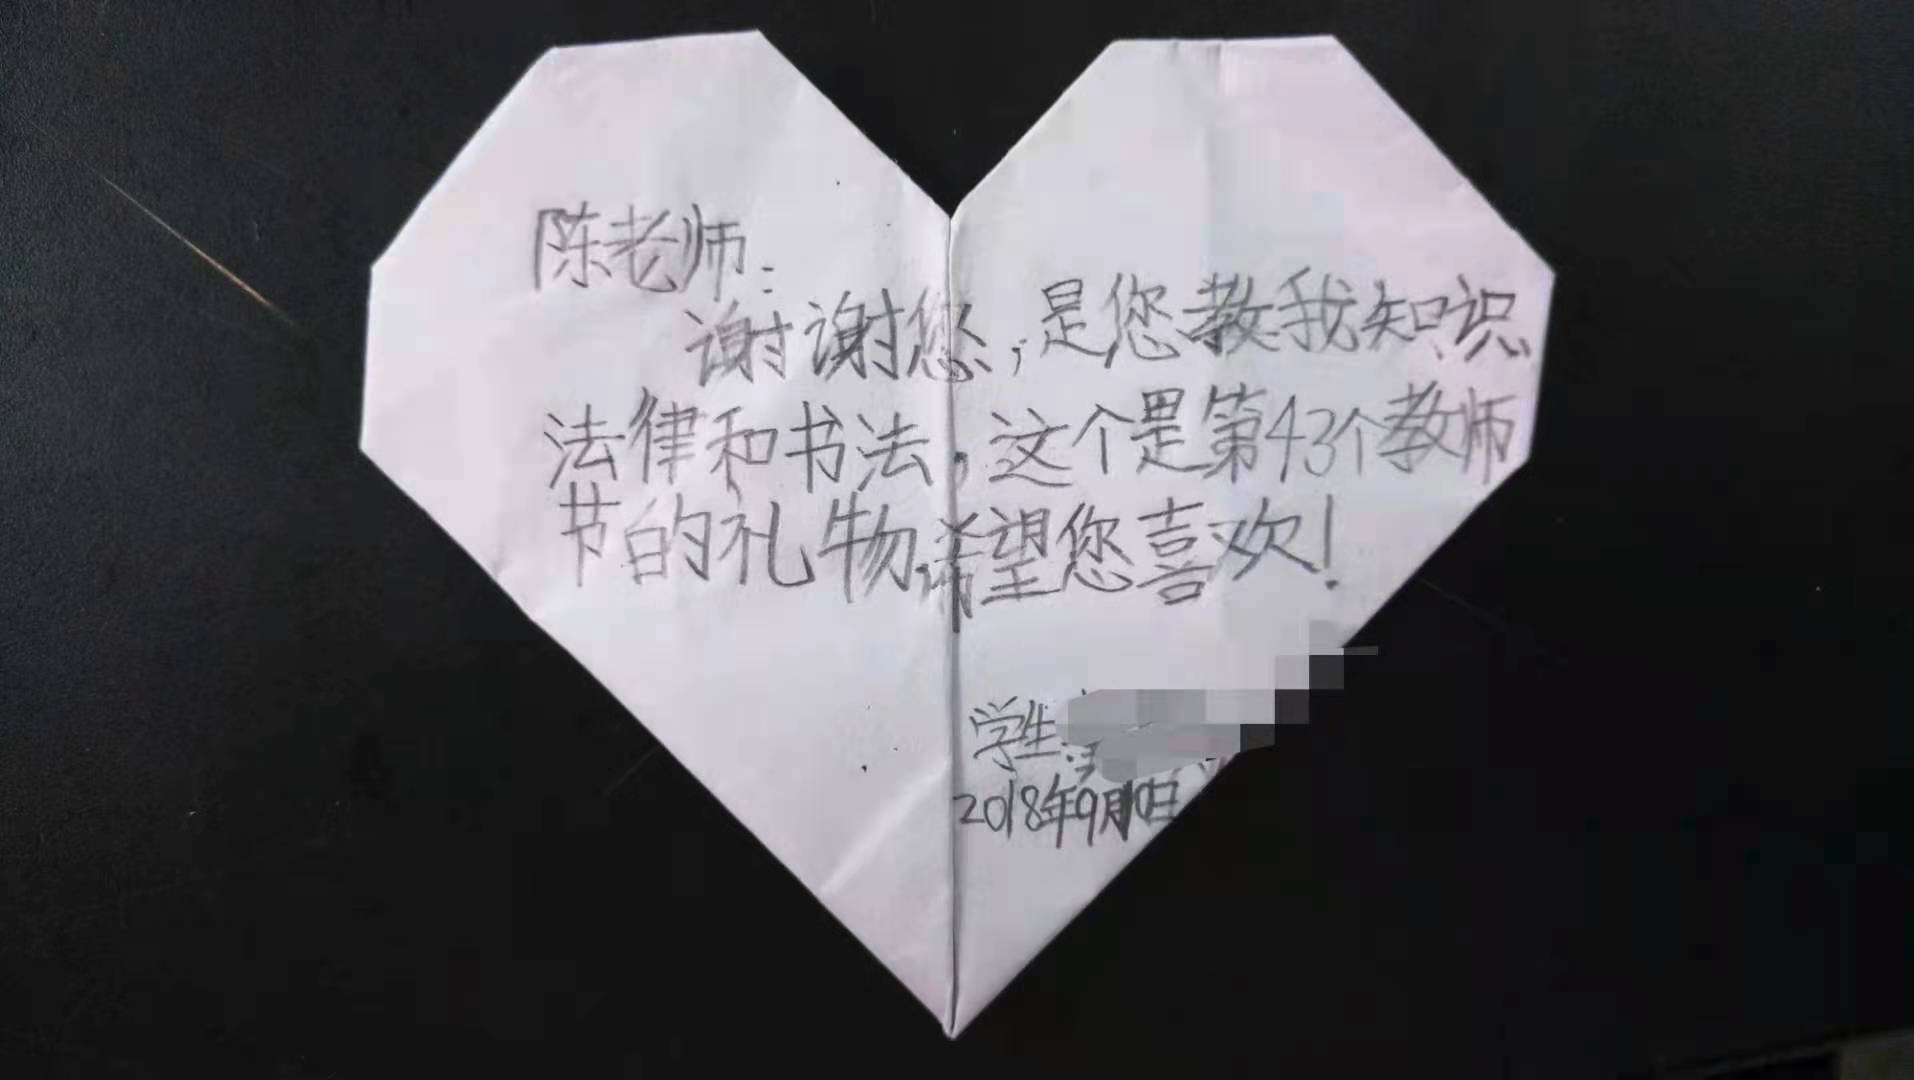 陈老师:
谢谢您,是您教我知识
法律和书法,这个是第43个教师
节的礼物希望您喜欢!
学生:
2018年9月10日